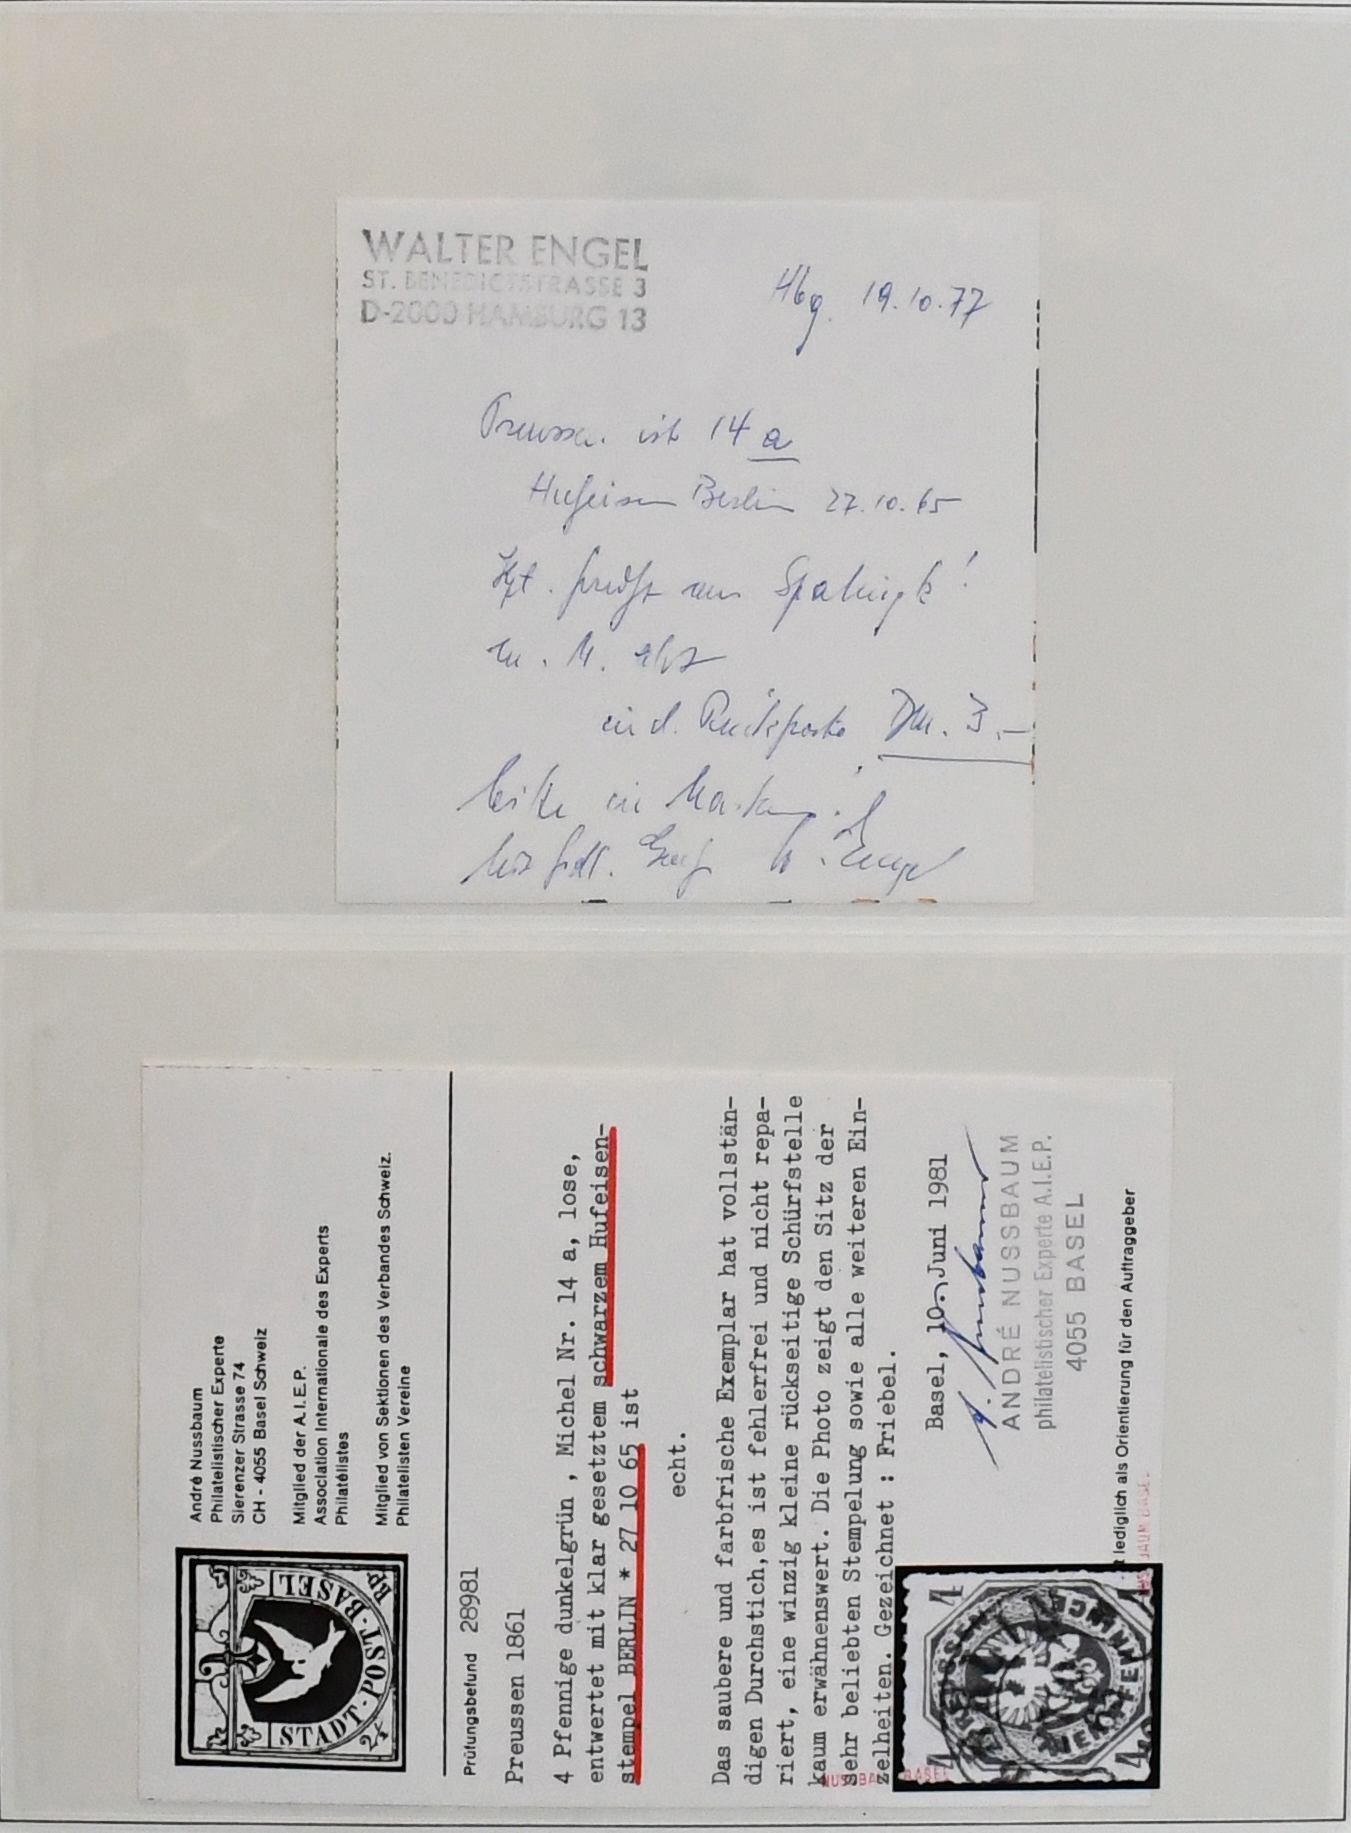 WALTER ENGEL
ST. BENEDICTSTRASSE 3
D-2000 HAMBURG 13
Hbg. 19.10.77
Preussen ist 14 a
Hufeisen Berlin 27.10.65
m. M. echt
incl. Rückporto DM. 3.-
bitte in Marken.
mit frdl. Gruß W. Engel
André Nussbaum
Philatelistischer Experte
Sierenzer Strasse 74
CH - 4055 Basel Schweiz
Mitglied der A.I.E.P.
Association Internationale des Experts
Philatélistes
Mitglied von Sektionen des Verbandes Schweiz.
Philatelisten Vereine
STADT·POST·BASEL
2½ RP.
Prüfungsbefund 28981
Preussen 1861
4 Pfennige dunkelgrün , Michel Nr. 14 a, lose,
entwertet mit klar gesetztem schwarzem Hufeisen-
stempel BERLIN * 27 10 65 ist
echt.
Das saubere und farbfrische Exemplar hat vollstän-
digen Durchstich,es ist fehlerfrei und nicht repa-
riert, eine winzig kleine rückseitige Schürfstelle
kaum erwähnenswert. Die Photo zeigt den Sitz der
sehr beliebten Stempelung sowie alle weiteren Ein-
zelheiten. Gezeichnet : Friebel.
Basel, 10. Juni 1981
A. Nussbaum
ANDRÉ NUSSBAUM
philatelistischer Experte A.I.E.P.
4055 BASEL
lediglich als Orientierung für den Auftraggeber
NUSSBAUM BASEL
4 4
4